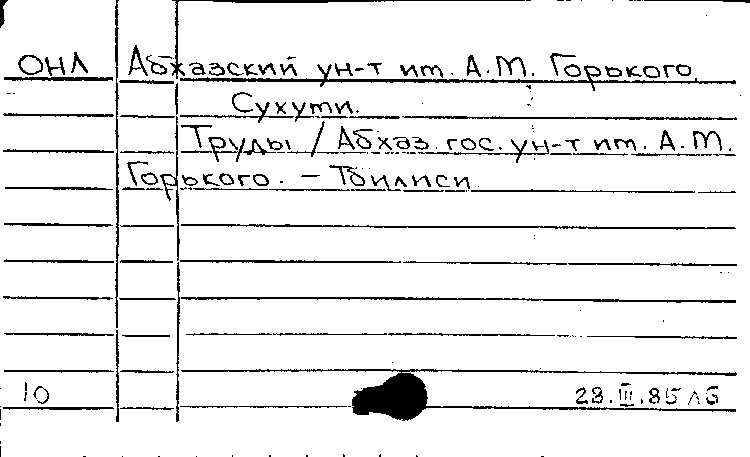 ОНЛ Абхазский ун-т им. А.М. Горького.
Сухуми.
Труды / Абхаз. гос. ун-т им. А.М.
Горького. – Тбилиси
10 28.III.85 лб